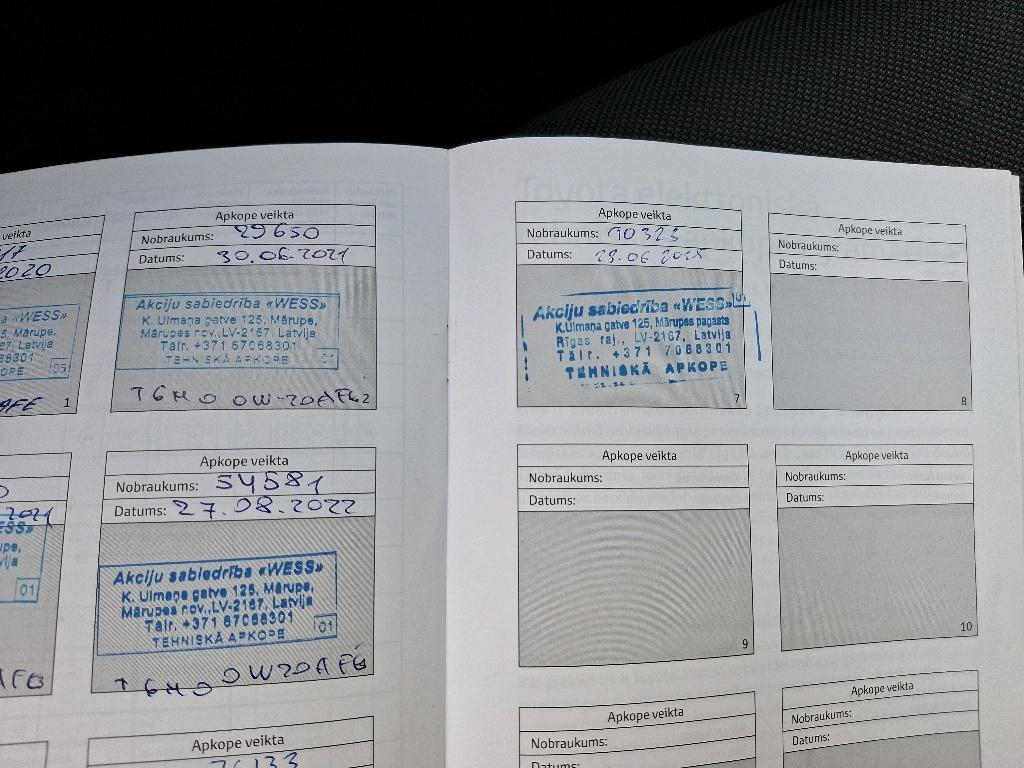 veikta
2020
Apkope veikta
Nobraukums: 29650
Datums: 30.06.2021
Akciju sabiedrība «WESS»
K. Ulmaņa gatve 125, Mārupe,
Mārupes nov., LV-2167, Latvija
Tālr. +371 67068301
TEHNISKĀ APKOPE 01
T GMO OW-20AFE 2
a «WESS»
5, Mārupe,
7, Latvija
68301
OPE 05
AFE 1
2021
ESS»
upe,
vija
01
AFE
Apkope veikta
Nobraukums: 54581
Datums: 27.08.2022
Akciju sabiedrība «WESS»
K. Ulmaņa gatve 125, Mārupe,
Mārupes nov., LV-2167, Latvija
Tālr. +371 67068301
TEHNISKĀ APKOPE 01
T GMO OW20AFE
Apkope veikta
76133
Toyota elektroniskā
Apkope veikta
Nobraukums: 90323
Datums:
Akciju sabiedrība «WESS»
K.Ulmaņa gatve 125, Mārupes pagasts
Rīgas raj., LV-2167, Latvija
Tālr. +371 7068301
TEHNISKĀ APKOPE
7
Apkope veikta
Nobraukums:
Datums:
8
Apkope veikta
Nobraukums:
Datums:
9
Apkope veikta
Nobraukums:
Datums:
10
Apkope veikta
Nobraukums:
Datums:
Apkope veikta
Nobraukums:
Datums: